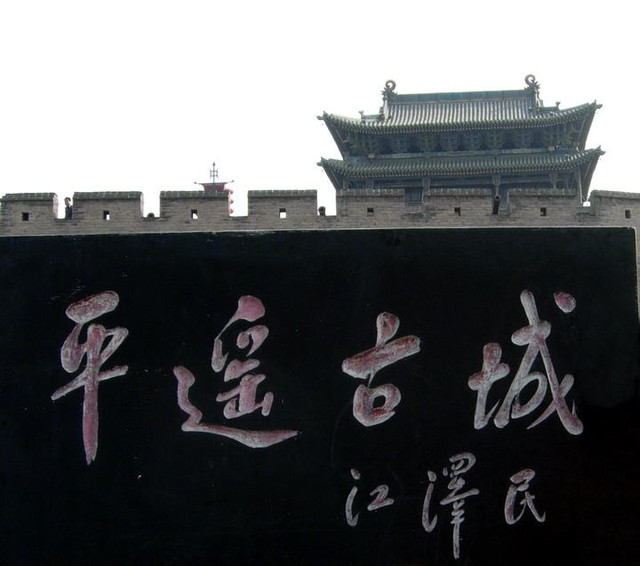 平遥古城
江澤民